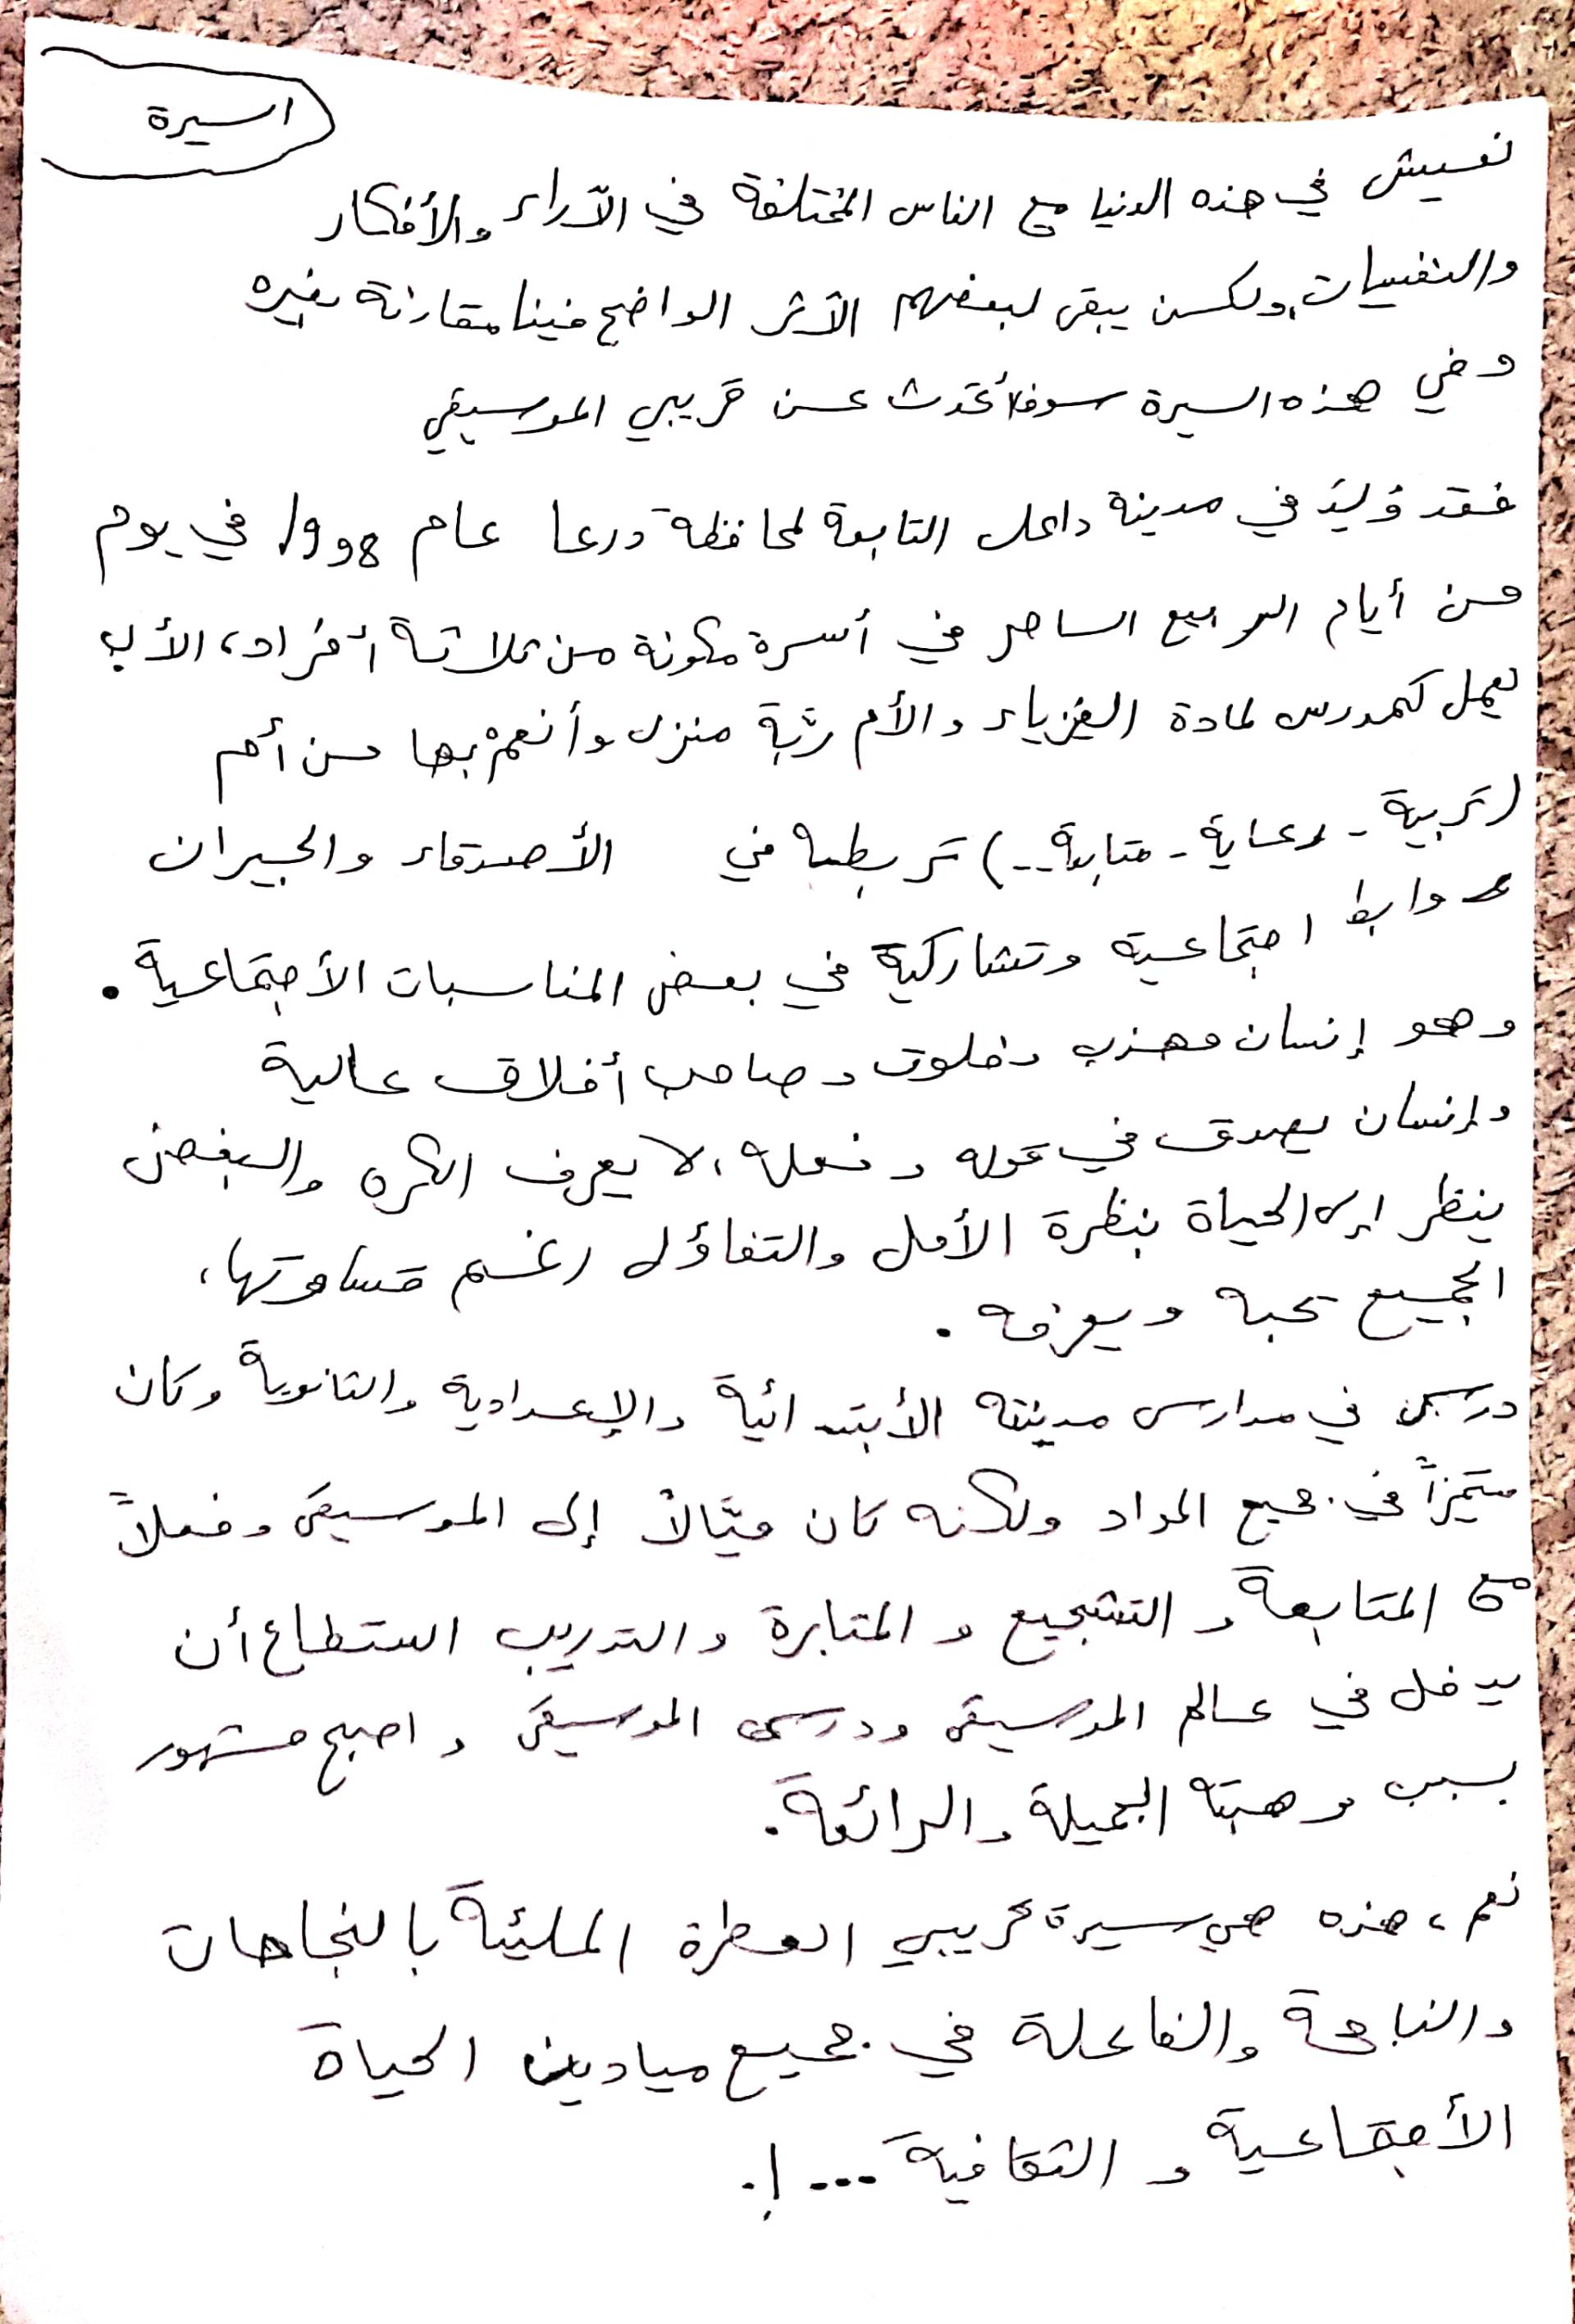 اسيرة
نعيش في هذه الدنيا مع الناس المختلفة في الآراء والأفكار
والنفسيات، ولكن يبقى لبعضهم الأثر الواضح فينا مقارنة بغيره
وفي هذه السيرة سوف أتحدث عن قريبي الموسيقي
فقد وُلِدَ في مدينة داعل التابعة لمحافظة درعا عام 1998 في يوم
من أيام الربيع الساحر في أسرة مكونة من ثلاثة أفراد، الأب
يعمل كمدرس لمادة الفيزياء والأم ربّة منزل وأنعمْ بها من أم
(تربية - رعاية - متابعة --) تربطه في الأصدقاء والجيران
روابط اجتماعية وتشاركية في بعض المناسبات الأجتماعية.
وهو إنسان مهذب وخلوق وصاحب أخلاق عالية
وإنسان يصدق في قوله وفعله، لا يعرف الكره والبغض
ينظر إلى الحياة بنظرة الأمل والتفاؤل رغم قساوتها،
الجميع يحبه ويعرفه.
درس في مدارس مدينته الأبتدائية والإعدادية والثانوية وكان
متميزاً في جميع المواد ولكنه كان ميّالاً إلى الموسيقى وفعلاً
مع المتابعة والتشجيع والمثابرة والتدريب استطاع أن
يدخل في عالم الموسيقى ودرس الموسيقى واصبح مشهور
بسبب موهبته الجميلة والرائعة.
نعم، هذه هي سيرة قريبي العطرة المليئة بالنجاحات
والناجحة والفاعلة في جميع ميادين الحياة
الأجتماعية والثقافية ...!.